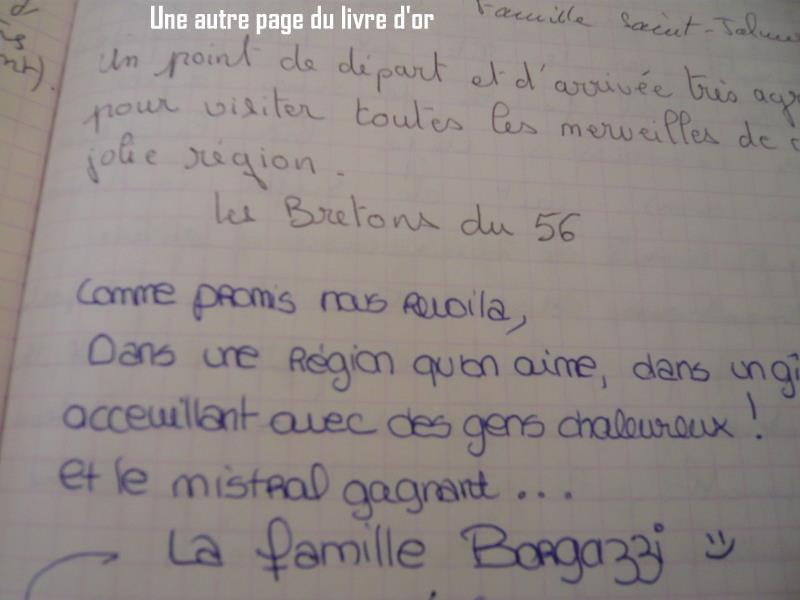 Une autre page du livre d'or
Famille Saint-Jalmes
un point de départ et d'arrivée très
pour visiter toutes les merveilles de
jolie région.
Les Bretons du 56
Comme promis nous revoila,
Dans une Région qu'on aime, dans un gî
acceuillant avec des gens chaleureux !
et le mistral gagnant ...
La famille Borgazzi